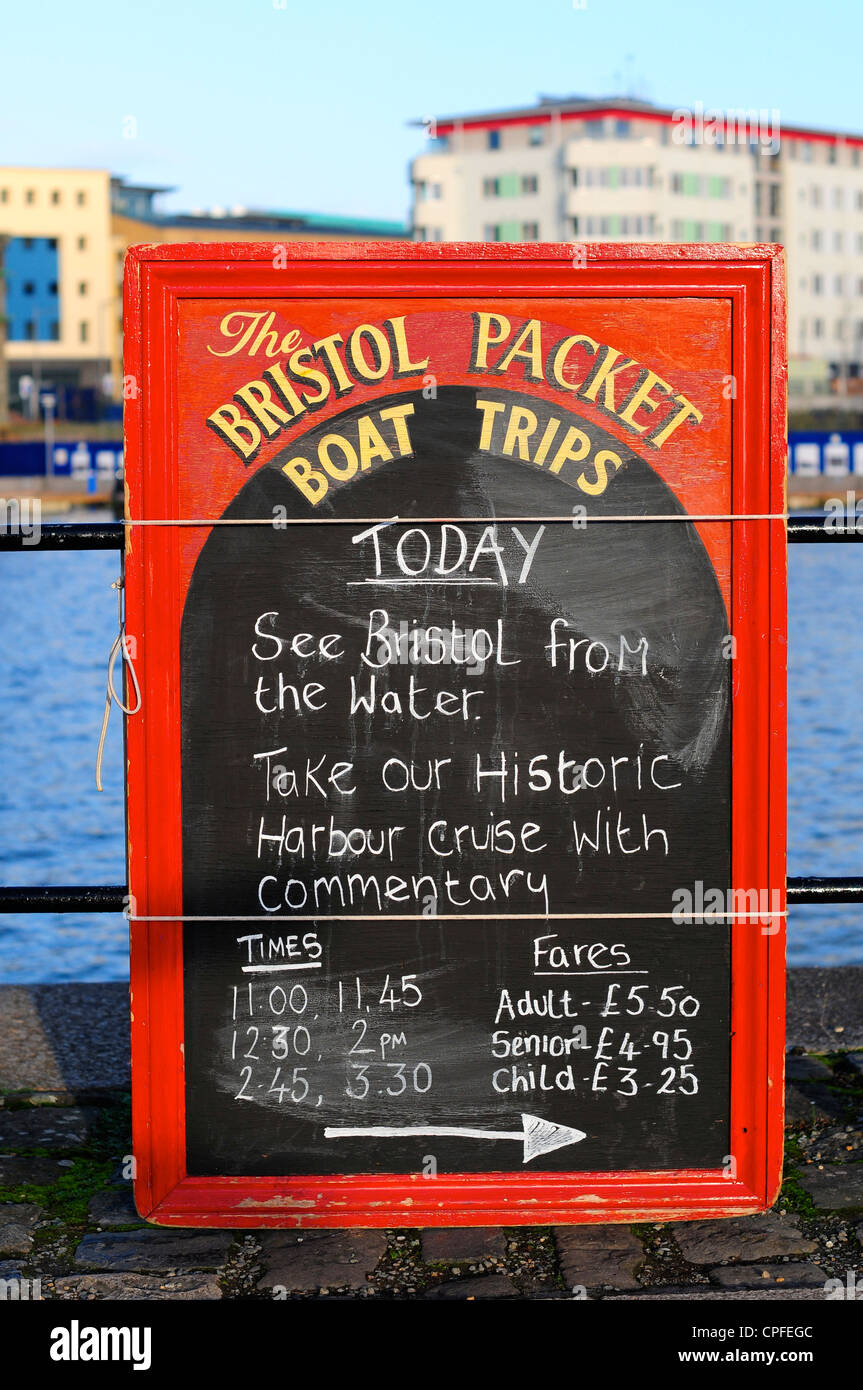 The
BRISTOL PACKET
BOAT TRIPS
TODAY
See Bristol from
the Water.
Take our Historic
Harbour cruise with
commentary
TIMES
11.00, 11.45
12.30, 2 PM
2.45, 3.30
Fares
Adult - £5.50
Senior - £4.95
Child - £3.25
alamy
Image ID: CPFEGC
www.alamy.com